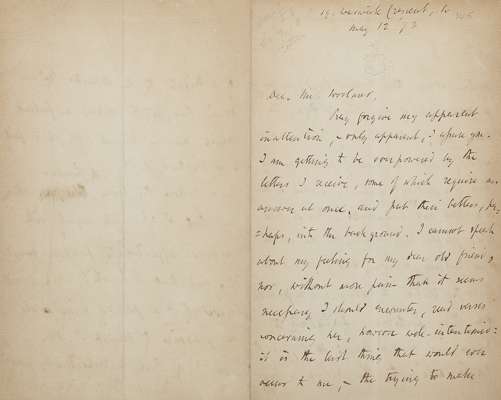 19. Warwick Crescent, W.
May 12 '7
Dear Mr
Pray forgive my apparent
inattention, – only apparent, I assure you.
I am getting to be overpowered by the
letters I receive, some of which require an
answer at once, and put their betters, per-
=haps, into the background. I cannot speak
about my feeling for my dear old friend,
nor, without more pain than it seems
necessary I should encounter, read verses
concerning her, however well-intentioned:
it is the last thing that would ever
occur to me, – the trying to make